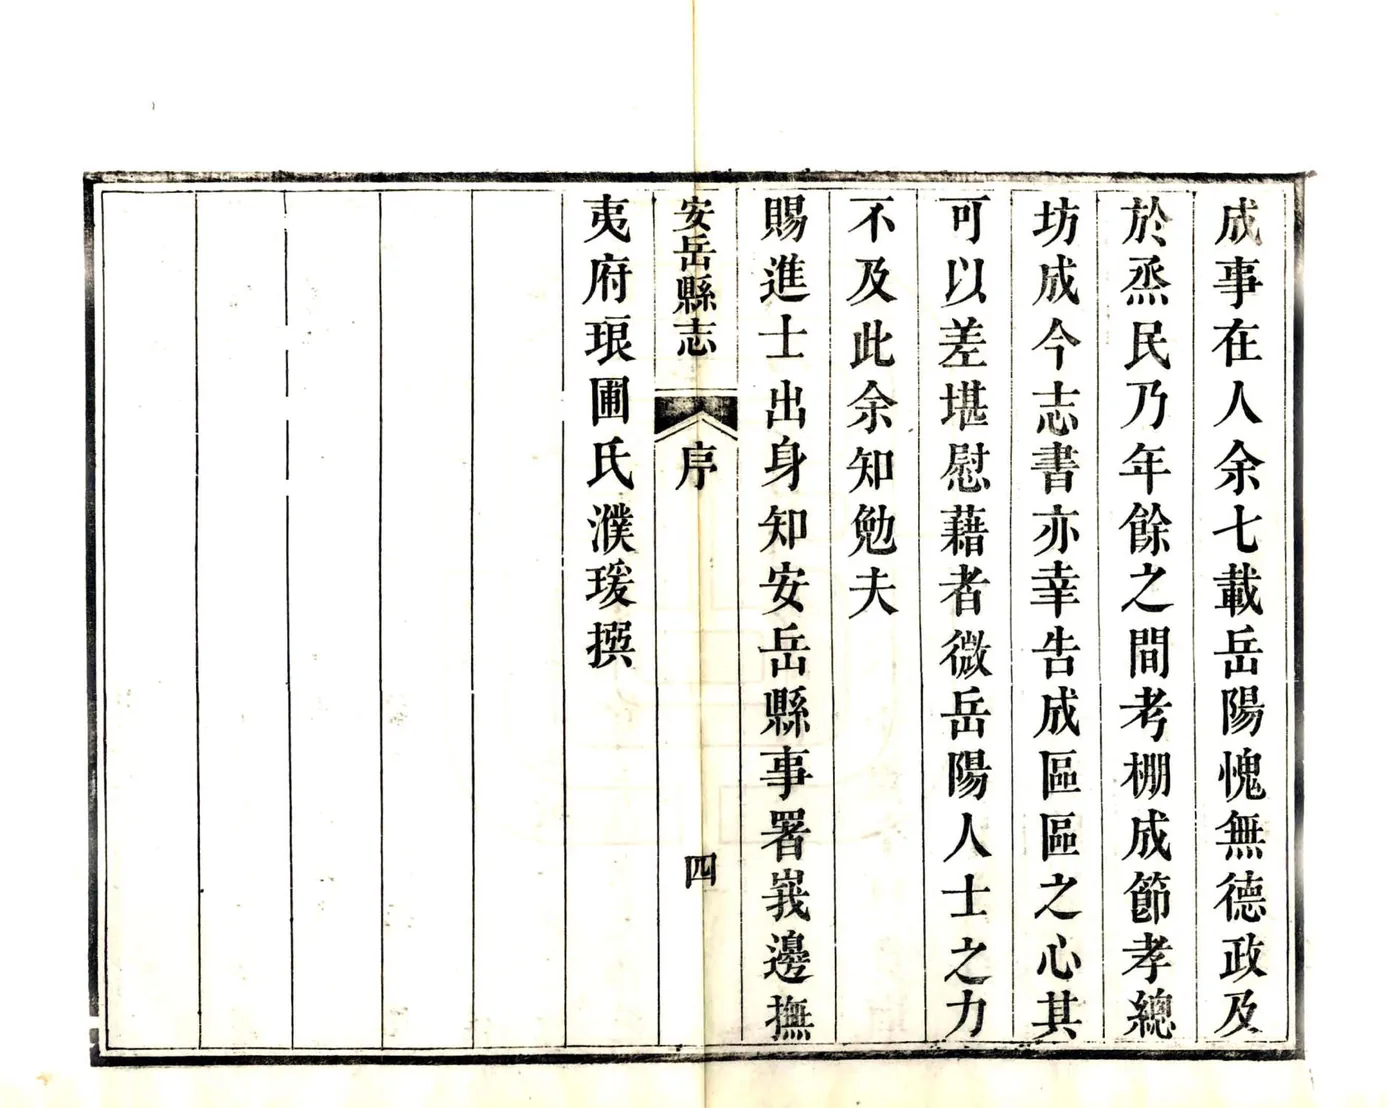 成事在人余七載岳陽愧無德政及
於烝民乃年餘之間考棚成節孝總
坊成今志書亦幸告成區區之心其
可以差堪慰藉者微岳陽人士之力
不及此余知勉夫
賜進士出身知安岳縣事署峩邊撫
安岳縣志
序
四
夷府琅圃氏濮瑗撰